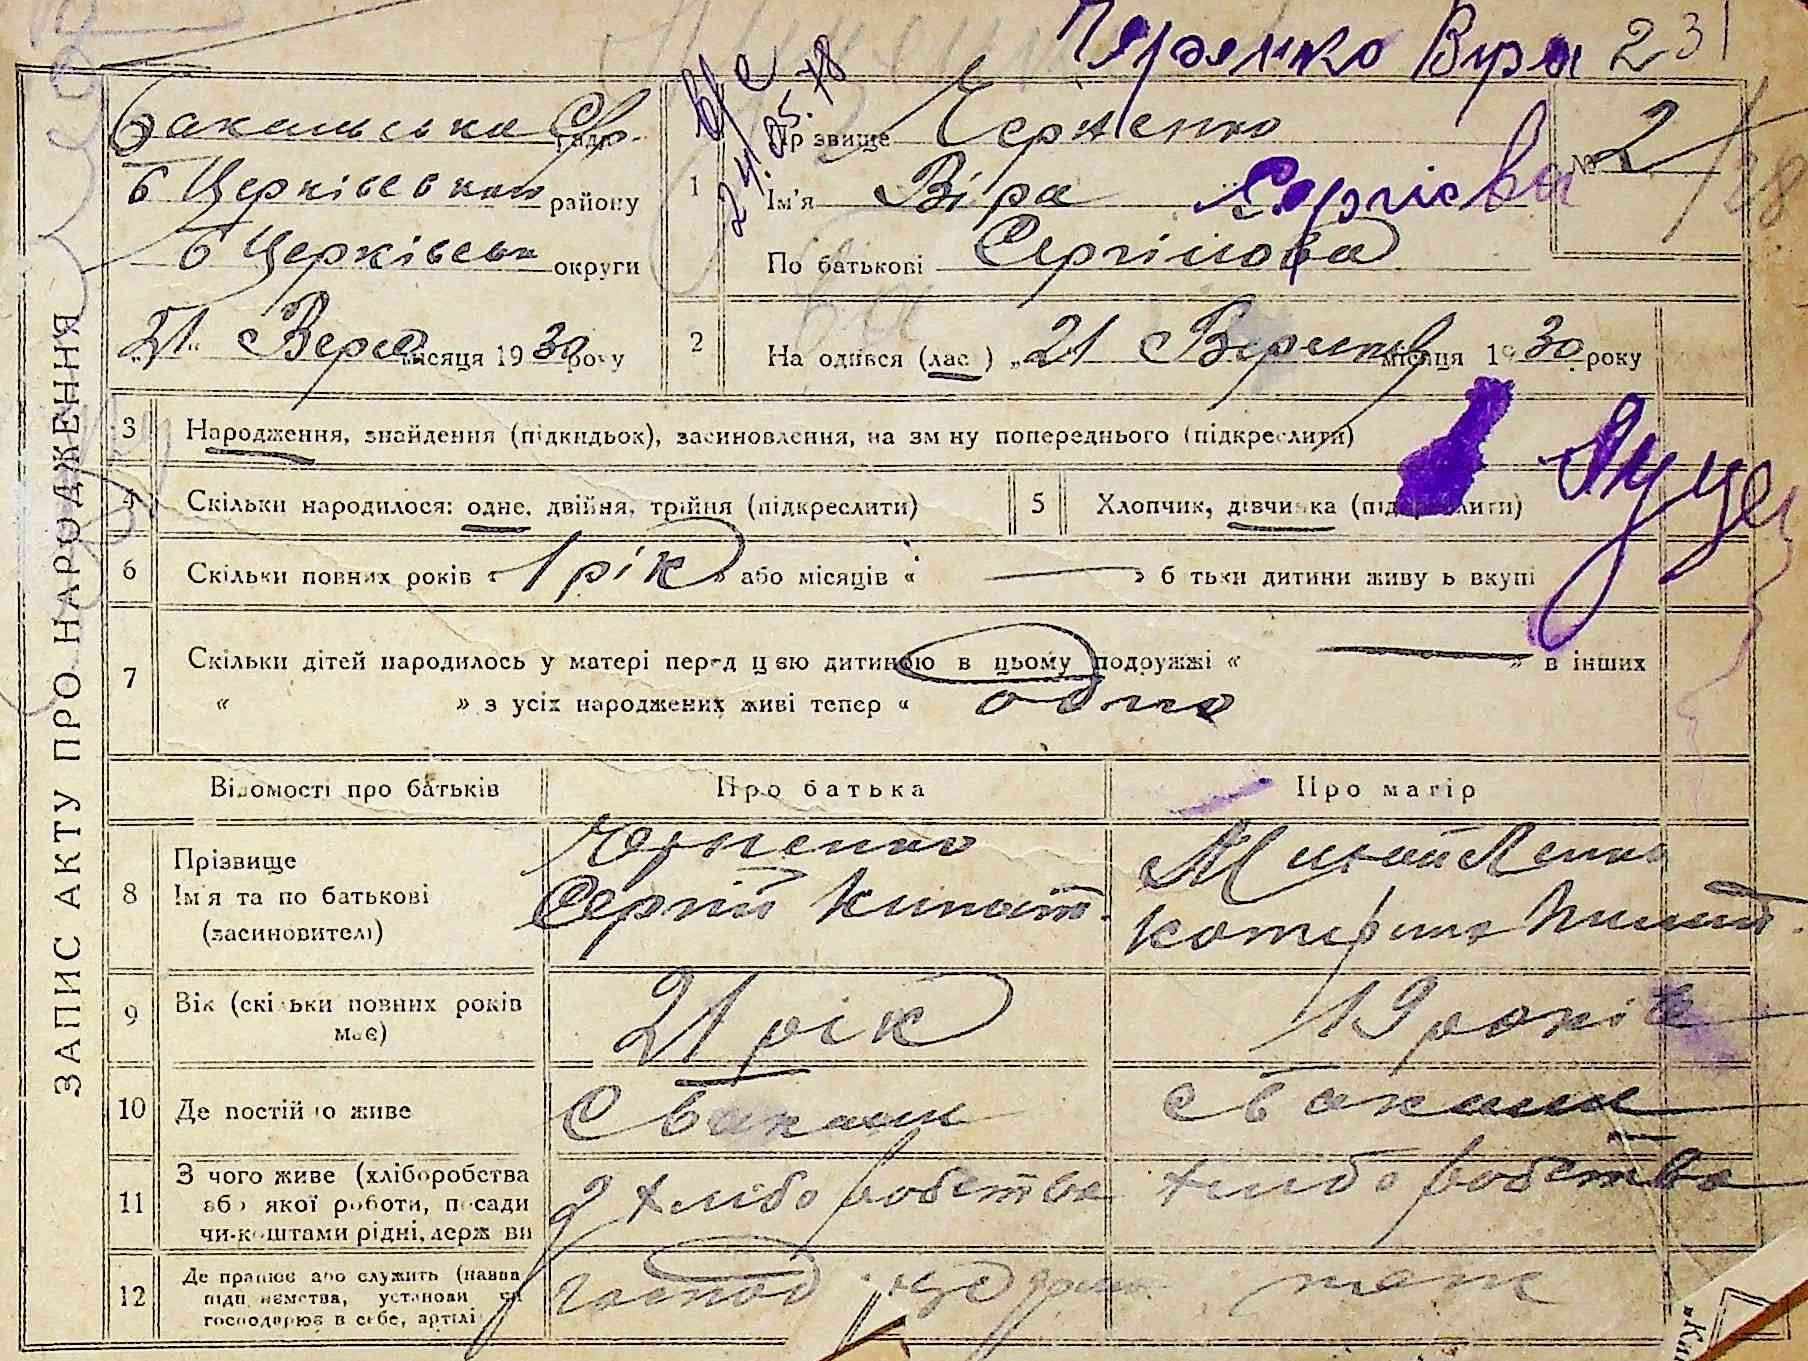 231
ЗАПИС АКТУ ПРО НАРОДЖЕННЯ
24.05.78
Бакальська С/р
ради
Б Церківського району
Б Церківськ округи
"21" Верес місяця 1930 року
1
Прізвище Черненко
Ім'я Віра
По батькові Сергіївна
№ 2
2
На одився (лас ) „21 Вересня місяця 1930 року
3
Народження, знайдення (підкидьок), засиновлення, на зм ну попереднього (підкреслити)
4
Скільки народилося: одне, двійня, трійня (підкреслити)
5
Хлопчик, дівчинка (підкреслити)
6
Скільки повних років « 1 рік » або місяців « — » б тьки дитини живу ь вкупі
7
Скільки дітей народилось у матері перед цією дитиною в цьому подружжі « — » в інших
« » з усіх народжених живі тепер « одно
Відомості про батьків
Про батька
Про матір
8
Прізвище
Ім'я та по батькові
(засиновителі)
Черненко
Сергій
9
Вік (скільки повних років
має)
21 рік
19 років
10
Де постійно живе
с Бакали
с Бакали
11
З чого живе (хліборобства
або якої роботи, посади
чи-коштами рідні, держ ви
з хліборобства
хліборобства
12
Де працює або служить (назва
підп иємства, установи чи
господарює в себе, артілі
господ
теж
"Ки